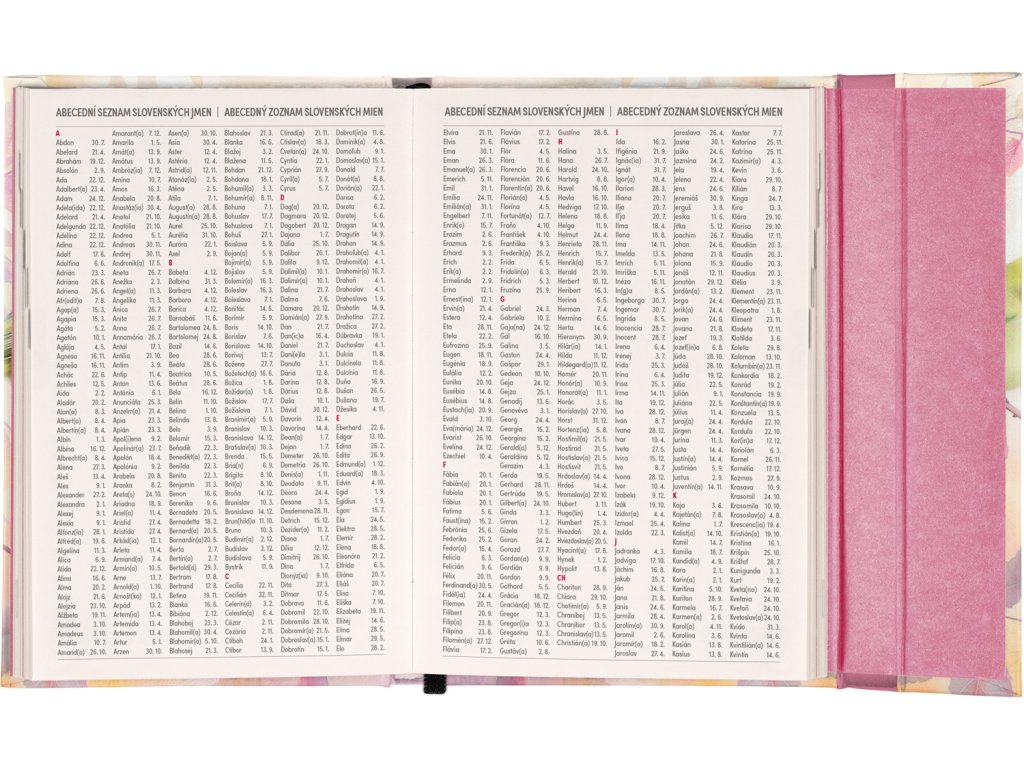 ABECEDNÍ SEZNAM SLOVENSKÝCH JMEN | ABECEDNÝ ZOZNAM SLOVENSKÝCH MIEN
A
Abdon 30. 7.
Abelard 21. 4.
Abrahám 19. 12.
Absolón 2. 9.
Ada 22. 12.
Adalbert(a) 23. 4.
Adam 24. 12.
Adela(ida) 22. 12.
Adelard 21. 4.
Adelgunda 22. 12.
Adelina 22. 12.
Adina 22. 12.
Adolf 17. 6.
Adolfína 6. 6.
Adrián 23. 3.
Adriána 26. 6.
Adriena 26. 6.
Afr(odit)a 7. 8.
Agap(a) 15. 3.
Agapia 15. 3.
Agáta 5. 2.
Agatón 10. 1.
Aglája 4. 5.
Agnesa 16. 11.
Agneša 16. 11.
Achác 22. 6.
Achiles 12. 5.
Aida 2. 2.
Aladár 20. 2.
Alan(a) 8. 3.
Albert(a) 8. 4.
Albertín(a) 8. 4.
Albín 1. 3.
Albína 16. 12.
Albrecht(a) 8. 4.
Alena 27. 3.
Aleš 13. 4.
Alex 9. 1.
Alexander 27. 2.
Alexandra 2. 1.
Alexej 9. 1.
Alexia 9. 1.
Alfonz(ia) 28. 1.
Alfréd(a) 19. 6.
Algelína 11. 3.
Alica 6. 9.
Alida 22. 12.
Alina 16. 6.
Alma 20. 2.
Alojz 21. 6.
Alojzia 23. 10.
Alžbeta 19. 11.
Amadea 3. 10.
Amadeus 3. 10.
Amália 10. 7.
Amand(a) 26. 10.
Amarant(a) 7. 12.
Amarila 1. 5.
Amát(a) 13. 9.
Amátus 13. 9.
Ambróz(ia) 7. 12.
Amína 10. 7.
Amos 16. 3.
Anabela 20. 8.
Anastáz(ia) 30. 4.
Anatol 21. 10.
Anatólia 21. 10.
Andrea 5. 1.
Andreas 30. 11.
Andrej 30. 11.
Andronik(a) 17. 5.
Aneta 26. 7.
Anežka 2. 3.
Angel(a) 11. 3.
Angelika 11. 3.
Anica 26. 7.
Anita 26. 7.
Anna 26. 7.
Annamária 26. 7.
Antal 17. 1.
Antília 21. 10.
Antim 3. 9.
Antip 11. 4.
Anton 13. 6.
Antónia 6. 1.
Anunciáta 25. 3.
Anzelm(a) 21. 4.
Apia 23. 3.
Apián 23. 3.
Apol(i)ena 9. 2.
Apolinár(a) 23. 7.
Apolón 18. 4.
Apolónia 9. 2.
Arabela 20. 8.
Aranka 8. 2.
Areta(s) 24. 10.
Ariadna 18. 9.
Ariel(a) 11. 4.
Aristid 27. 4.
Aristída 27. 4.
Arkád(ia) 12. 1.
Arleta 11. 4.
Armand(a) 7. 4.
Armín(a) 10. 5.
Arne 13. 7.
Arnold(a) 1. 10.
Arnošt(ka) 12. 1.
Arpád 13. 2.
Artem(ia) 13. 4.
Artemida 13. 4.
Artemon 13. 4.
Artur 5. 1.
Arzen 30. 10.
Asen(a) 30. 10.
Asia 30. 4.
Aster 12. 4.
Astéria 12. 4.
Astrid(a) 12. 11.
Atanáz(ia) 2. 5.
Aténa 2. 5.
Atila 7. 1.
August(a) 28. 8.
Augustín(a) 28. 8.
Aurel 25. 10.
Aurélia 31. 10.
Auróra 22. 1.
Axel 2. 9.
B
Babeta 4. 12.
Balbína 31. 3.
Barbara 4. 12.
Barbora 4. 12.
Barica 4. 12.
Barnabáš 11. 6.
Bartolomea 24. 8.
Bartolomej 24. 8.
Bazil 14. 6.
Bea 28. 6.
Beáta 28. 6.
Beatrica 10. 5.
Beátus 28. 6.
Bela 16. 12.
Belín 11. 10.
Belina 1. 10.
Belinda 13. 8.
Belo 3. 9.
Belomír 15. 3.
Beňadik 22. 3.
Benedikt(a) 22. 3.
Benilda 22. 3.
Benita 22. 3.
Benjamín 31. 3.
Benon 16. 6.
Berenika 9. 6.
Bernadeta 20. 5.
Bernadetta 18. 2.
Bernard(a) 20. 5.
Bernardín(a) 20. 5.
Berta 2. 7.
Bertín(a) 2. 7.
Bertold(a) 29. 3.
Bertram 17. 8.
Bertrand 17. 8.
Betina 19. 11.
Bianka 16. 6.
Bibiána 2. 12.
Blahoboj 23. 3.
Blahomil(a) 30. 4.
Blahomír(a) 5. 10.
Blahosej 21. 3.
Blahoslav 21. 3.
Blanka 16. 6.
Blažej 3. 2.
Blažena 11. 5.
Bohdan 21. 12.
Bohdana 18. 1.
Bohumil(a) 3. 3.
Bohumír(a) 8. 11.
Bohuna 7. 1.
Bohuslav 17. 7.
Bohuslava 7. 1.
Bohuš 27. 1.
Boislava 5. 9.
Bojan(a) 5. 9.
Bojimír(a) 5. 9.
Bojislav 5. 9.
Bolemír(a) 16. 3.
Boleslav 16. 3.
Boleslava 7. 1.
Bonifác 14. 5.
Borimír 5. 9.
Boris 14. 10.
Borislav 7. 6.
Borislava 14. 10.
Borivoj 13. 7.
Božena 27. 7.
Božetech(a) 16. 6.
Božica 1. 8.
Božidar(a) 1. 8.
Božislav 17. 7.
Božislava 7. 1.
Branimír(a) 5. 9.
Branislav 10. 3.
Branislava 14. 12.
Bratislav(a) 10. 3.
Brenda 15. 5.
Bria(n) 6. 9.
Brigita 8. 10.
Brit(a) 8. 10.
Broňa 14. 12.
Bronislav 10. 3.
Bronislava 14. 12.
Brun(hild)a 11. 10.
Bruno 10. 3.
Budimír(a) 2. 12.
Budislav 2. 12.
Budislava 5. 9.
Bystrík 11. 9.
C
Cecília 22. 11.
Cecilián 22. 11.
Celerín(a) 3. 2.
Celestín(a) 6. 4.
Cézar 2. 11.
Cezária 2. 11.
Ctiboh 24. 1.
Ctibor 13. 9.
Ctirad(a) 21. 11.
Ctislav(a) 18. 3.
Cvetan(a) 24. 10.
Cyntia 22. 1.
Cyprián 27. 9.
Cyril(a) 5. 7.
Cyrus 5. 7.
D
Dag(a) 20. 12.
Dagmara 20. 12.
Dagobert 20. 12.
Dajana 1. 7.
Dália 25. 10.
Dalibor 20. 1.
Dalila 9. 12.
Dalimil(a) 10. 1.
Dalimír(a) 10. 1.
Dalina 21. 7.
Dalma 7. 6.
Damara 20. 12.
Damián(a) 27. 9.
Dan 21. 7.
Dan(ic)a 16. 4.
Daniel 21. 7.
Dani(e)la 3. 1.
Danuta 3. 1.
Dária 12. 8.
Darina 12. 8.
Dárius 12. 8.
Daša 10. 1.
Dávid 30. 12.
Davorín 12. 4.
Davorína 14. 4.
Dean(a) 1. 7.
Dejan 12. 2.
Demeter 26. 10.
Demetria 26. 10.
Denis(a) 1. 1.
Deodata 9. 11.
Deora 24. 4.
Desana 3. 5.
Desdemona 28. 11.
Detrich 15. 12.
Dezider(a) 11. 2.
Diana 1. 7.
Dília 12. 12.
Dimitrij 26. 10.
Dina 1. 7.
Dionýz(ia) 9. 10.
Dita 27. 3.
Ditmar 17. 5.
Dobrava 11. 6.
Dobromil 22. 10.
Dobromila 28. 10.
Dobromír(a) 21. 5.
Dobroslav(a) 15. 1.
Dobrotín 15. 1.
Dobrot(ín)a 11. 6.
Dominik(a) 4. 8.
Domoľub 9. 1.
Domoslav(a) 15. 1.
Donald 7. 7.
Donát(a) 8. 8.
Dorián(a) 22. 1.
Dorisa 6. 2.
Dorota 6. 2.
Dorotej 5. 6.
Dragan 14. 9.
Dragutín 14. 9.
Drahan 14. 9.
Draholub(a) 4. 1.
Drahomil(a) 4. 1.
Drahomír(a) 16. 7.
Drahoň 4. 1.
Drahoslav 4. 1.
Drahoslava 1. 9.
Drahotín 14. 9.
Drahotína 27. 2.
Dražica 27. 2.
Dúbravka 19. 1.
Duchoslav 4. 1.
Dulcia 11. 8.
Dulcinela 11. 8.
Dulcínia 11. 8.
Duňa 16. 9.
Dušan 26. 5.
Dušana 19. 7.
Džesika 4. 11.
E
Eberhard 22. 6.
Edgar 13. 10.
Edina 26. 2.
Edita 26. 9.
Edmund(a) 1. 12.
Eduard(a) 18. 3.
Edvin 4. 10.
Egid 1. 9.
Egídius 1. 9.
Egon 15. 7.
Ela 24. 5.
Elektra 28. 5.
Elemír 28. 2.
Elena 18. 8.
Eleonóra 21. 2.
Elfrída 6. 5.
Eliána 20. 7.
Eliáš 20. 7.
Elisa 7. 10.
Eliška 7. 10.
Elizabeta 19. 11.
Elizej 14. 6.
Elma 28. 5.
Elmar 29. 5.
Elo 28. 2.
ABECEDNÍ SEZNAM SLOVENSKÝCH JMEN | ABECEDNÝ ZOZNAM SLOVENSKÝCH MIEN
Elvíra 21. 11.
Elvis 21. 6.
Ema 30. 1.
Eman 26. 3.
Emanuel(a) 26. 3.
Emerich 5. 11.
Emil 31. 1.
Emília 24. 11.
Emilián(a) 31. 1.
Engelbert 7. 11.
Enrik(o) 15. 7.
Erazim 2. 6.
Erazmus 2. 6.
Erhard 9. 3.
Erich 2. 2.
Erik(a) 2. 2.
Ermelinda 2. 9.
Erna 12. 1.
Ernest(ína) 12. 1.
Ervín(a) 21. 4.
Estera 12. 4.
Eta 28. 11.
Etela 22. 2.
Eufrozína 25. 9.
Eugen 18. 11.
Eugénia 18. 9.
Eulália 12. 2.
Eunika 20. 10.
Eusébia 14. 8.
Eusébius 14. 8.
Eustach(ia) 20. 9.
Evald 3. 10.
Eva(mária) 24. 12.
Evarist 26. 10.
Evelína 24. 12.
Ezechiel 10. 4.
F
Fábia 20. 1.
Fabián(a) 20. 1.
Fabiola 20. 1.
Fábius 20. 1.
Fatima 5. 6.
Faust(ína) 15. 2.
Febrónia 25. 6.
Federika 25. 2.
Fedor(a) 15. 4.
Felícia 6. 3.
Felicián 9. 6.
Félix 20. 11.
Ferdinand(a) 30. 5.
Fidél(ia) 24. 4.
Filemon 20. 11.
Filibert 20. 9.
Filip(a) 23. 8.
Filipína 23. 8.
Filomén(a) 27. 12.
Flávia 17. 2.
Flavián 17. 2.
Flávius 17. 2.
Flór 4. 5.
Flóra 11. 6.
Florencia 20. 6.
Florencián 20. 6.
Florentín(a) 20. 6.
Florián(a) 4. 5.
Florína 4. 5.
Fortunát(a) 12. 7.
Fraňo 4. 10.
František 4. 10.
Františka 9. 3.
Frederik(a) 25. 2.
Frída 6. 5.
Fridolín(a) 6. 3.
Fridrich 5. 3.
Fruzína 25. 9.
G
Gabriel 24. 3.
Gabriela 10. 2.
Gaja(na) 24. 12.
Gál 16. 10.
Galina 3. 5.
Gaston 24. 4.
Gašpar 29. 1.
Gedeon 10. 10.
Geja 24. 12.
Gejza 25. 1.
Genadij 13. 6.
Genovéva 3. 1.
Georg 24. 4.
Georgia 15. 2.
Georgína 15. 2.
Gerald(a) 5. 12.
Geraldína 5. 12.
Gerazim 4. 3.
Gerda 19. 5.
Gerhard 28. 11.
Gertrúda 19. 5.
Gilbert(a) 24. 10.
Ginda 3. 3.
Girron 1. 2.
Gizela 17. 5.
Goran 24. 2.
Gorazd 27. 7.
Gordan(a) 9. 9.
Gordián 9. 9.
Gordon 9. 9.
Gothard 5. 5.
Grácia 18. 12.
Gracián(a) 18. 12.
Gregor 12. 3.
Gregor(i)a 12. 3.
Gregorína 12. 3.
Gréta 10. 6.
Gustáv(a) 2. 8.
Gustína 28. 8.
H
Halina 3. 5.
Hana 26. 7.
Harold 24. 10.
Hartvig 8. 8.
Havel 16. 10.
Havla 16. 10.
Hedviga 17. 10.
Helena 18. 8.
Helga 11. 9.
Helmut 24. 4.
Henrieta 28. 11.
Henrich 15. 7.
Henrik(a) 15. 7.
Herald 21. 10.
Herbert 10. 12.
Heribert 16. 3.
Herína 6. 5.
Herman 7. 4.
Hermína 6. 5.
Herta 14. 6.
Hieronym 30. 9.
Hilár(ia) 14. 1.
Hilda 11. 12.
Hildegard(a) 11. 12.
Homér 20. 11.
Honór(a) 10. 9.
Honorát(a) 11. 1.
Horác 3. 5.
Horislav(a) 27. 10.
Horst 31. 12.
Hortenz(ia) 5. 8.
Hostimil(a) 21. 5.
Hostirad 21. 5.
Hostislav(a) 21. 5.
Hostisvit 21. 5.
Hrdoslav(a) 14. 4.
Hrdoš 14. 4.
Hromislav(a) 27. 10.
Hubert 3. 11.
Hugo(lín) 1. 4.
Humbert 25. 3.
Hviezdoň 20. 4.
Hviezdoslav(a) 20. 5.
Hyacint(a) 17. 8.
Hynek 1. 2.
Hypolit 13. 8.
CH
Chariton 28. 9.
Chiara 29. 10.
Chotimír(a) 5. 9.
Chraniboj 13. 5.
Chranibor 13. 5.
Chranislav(a) 13. 5.
Christián(a) 19. 10.
I
Ida 16. 2.
Ifigénia 21. 9.
Ignác(ia) 31. 7.
Ignát 31. 7.
Igor(a) 10. 4.
Ilarion 28. 3.
Iliana 20. 7.
Iľja 20. 7.
Iľja 20. 7.
Ilma 18. 4.
Ilona 18. 8.
Ima 14. 11.
Imelda 13. 5.
Imrich 5. 11.
Imriška 5. 11.
Inéza 16. 11.
In(g)a 8. 5.
Ingeborga 30. 7.
Ingemar 30. 7.
Ingrida 8. 5.
Inocencia 28. 7.
Inocent 28. 7.
Irena 6. 4.
Irenej 3. 7.
Irida 25. 3.
Irína 6. 4.
Irisa 25. 3.
Irma 14. 11.
Ita 19. 12.
Iva 28. 12.
Ivan 8. 7.
Ivana 28. 12.
Ivar 10. 4.
Iveta 27. 5.
Ivica 15. 12.
Ivo 8. 7.
Ivona 18. 12.
Ivor 10. 4.
Izabela 9. 12.
Izák 19. 10.
Izidor(a) 4. 4.
Izmael 25. 4.
Izolda 22. 2.
J
Jadranka 4. 3.
Jadviga 17. 10.
Jáchim 16. 8.
Jakub 25. 7.
Ján 24. 6.
Jana 21. 8.
Janis 24. 6.
Jarmila 28. 4.
Jarolím(a) 30. 9.
Jaromil 2. 6.
Jaromír(a) 18. 2.
Jaroslav 27. 4.
Jaroslava 26. 4.
Jasna 30. 1.
Jaško 24. 6.
Jazmína 24. 2.
Jela 19. 4.
Jelena 22. 4.
Jens 24. 6.
Jeremiáš 30. 9.
Jerguš 3. 8.
Jesika 11. 6.
Jitka 5. 12.
Joachim 26. 7.
Johan 24. 6.
Johana 21. 8.
Jolana 15. 9.
Jonáš 12. 11.
Jonatán 29. 12.
Jordán(a) 13. 2.
Jorga 24. 4.
Jorik(a) 24. 4.
Jovan 24. 6.
Jovana 21. 8.
Jozef 19. 3.
Jozef(ín)a 6. 8.
Júda 28. 10.
Judáš 28. 10.
Judita 19. 12.
Júlia 22. 5.
Julián 9. 1.
Juliána 22. 5.
Július 11. 4.
Juraj(a) 24. 4.
Jürgen 24. 4.
Jurina 11. 3.
Justa 14. 4.
Justín(a) 14. 4.
Justinián 5. 9.
Justus 2. 9.
Juventín(a) 14. 11.
K
Kaja 3. 6.
Kajetán(a) 7. 8.
Kalina 1. 7.
Kalist(a) 14. 10.
Kamil 14. 7.
Kamila 18. 7.
Kandid(a) 4. 9.
Kara 2. 1.
Karin(a) 2. 1.
Karitína 5. 10.
Kariton 28. 9.
Karmela 16. 7.
Karmen(a) 2. 6.
Karol(a) 4. 11.
Karolína 3. 6.
Kasián 13. 8.
Kasius 13. 8.
Kastor 7. 7.
Katarína 25. 11.
Katrina 25. 11.
Kazimír(a) 4. 3.
Kevin 3. 6.
Kiara 29. 10.
Kilián 8. 7.
Kinga 24. 7.
Kira 13. 3.
Klára 29. 10.
Klarisa 29. 10.
Klaudia 17. 3.
Klaudián 20. 3.
Klaudín 20. 3.
Klaudio 20. 3.
Klaudius 20. 3.
Klélia 3. 9.
Klement 23. 11.
Klementín(a) 23. 11.
Kleopatra 1. 8.
Kliment 23. 11.
Klodeta 17. 11.
Klotilda 3. 6.
Koleta 29. 8.
Koloman 13. 10.
Kolumbín(a) 23. 11.
Konkordia 18. 2.
Konrád 19. 2.
Konstancia 19. 9.
Konštantín(a) 19. 9.
Konzuela 13. 5.
Kordula 22. 10.
Korduľa 22. 10.
Kor(in)a 17. 12.
Koriolán 6. 3.
Kornel 26. 11.
Kornélia 17. 12.
Kozmas 27. 9.
Krasava 10. 9.
Krasomil 24. 10.
Krasomila 10. 10.
Krasoslav(a) 4. 8.
Krescenc(ia) 19. 4.
Kristián(a) 19. 10.
Kristína 16. 1.
Krišpín 25. 10.
Krištof 28. 7.
Kunigunda 3. 3.
Kurt 19. 2.
Kveta(na) 24. 10.
Kvetava 24. 10.
Kvetoň 24. 10.
Kvetoslav(a) 24. 10.
Kvido 31. 3.
Kvinta 14. 6.
Kvintilián(a) 14. 6.
Kvintín 14. 6.